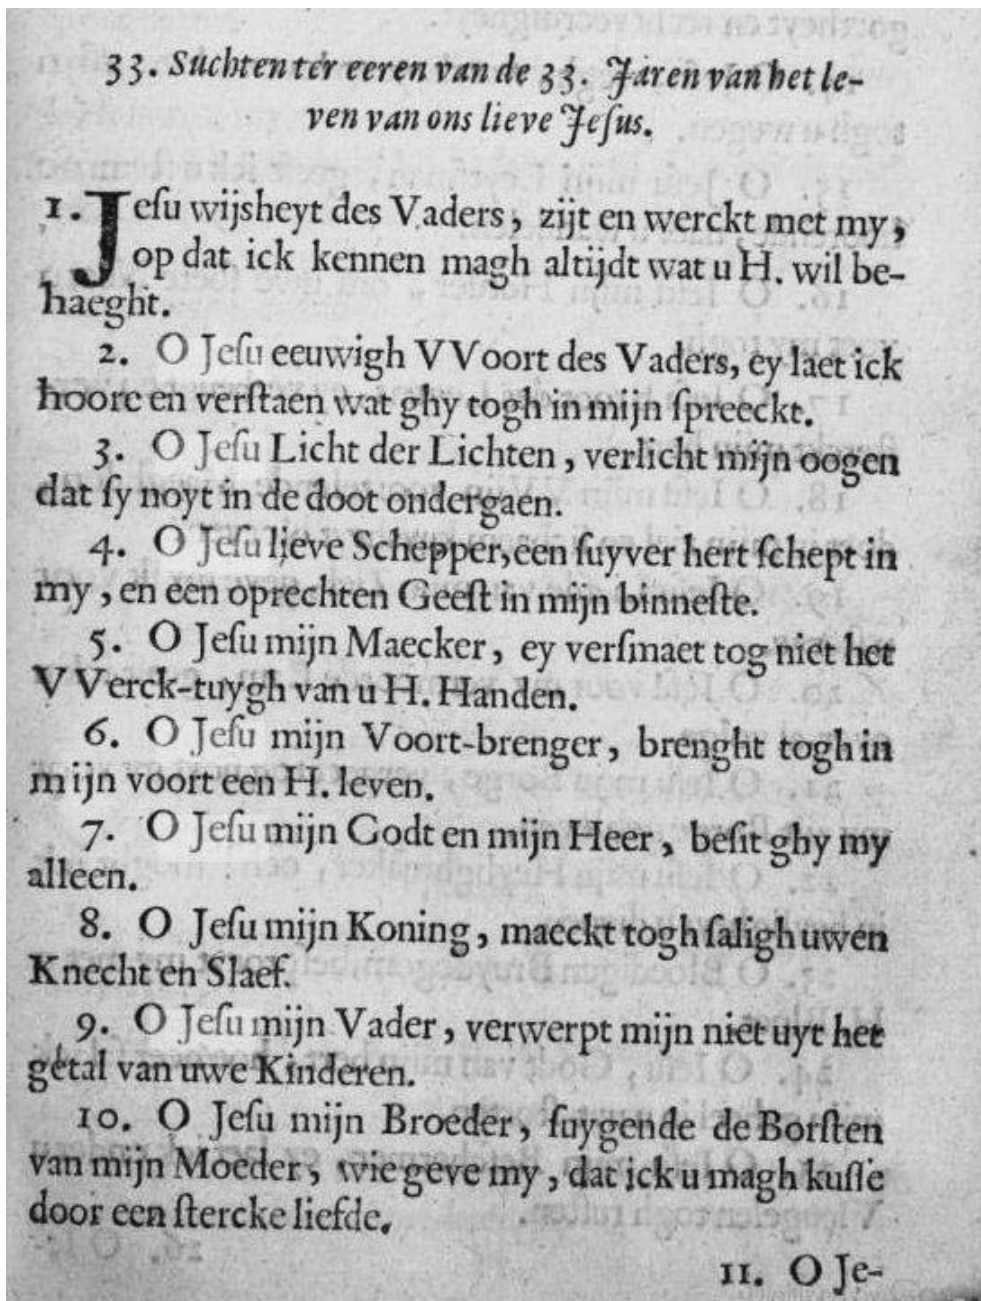 33. Suchten ter eeren van de 33. Jaren van het le-
ven van ons lieve Jeſus.
1. Jeſu wijsheyt des Vaders, zijt en werckt met my,
op dat ick kennen magh altijdt wat u H. wil be-
haeght.
2. O Jeſu eeuwigh VVoort des Vaders, ey laet ick
hoore en verſtaen wat ghy togh in mijn ſpreeckt.
3. O Jeſu Licht der Lichten, verlicht mijn oogen
dat ſy noyt in de doot ondergaen.
4. O Jeſu lieve Schepper, een ſuyver hert ſchept in
my, en een oprechten Geeſt in mijn binneſte.
5. O Jeſu mijn Maecker, ey verſmaet tog niet het
VVerck-tuygh van u H. Handen.
6. O Jeſu mijn Voort-brenger, brenght togh in
mijn voort een H. leven.
7. O Jeſu mijn Godt en mijn Heer, beſit ghy my
alleen.
8. O Jeſu mijn Koning, maeckt togh ſaligh uwen
Knecht en Slaef.
9. O Jeſu mijn Vader, verwerpt mijn niet uyt het
getal van uwe Kinderen.
10. O Jeſu mijn Broeder, ſuygende de Borſten
van mijn Moeder, wie geve my, dat ick u magh kuſſe
door een ſtercke liefde.
11. O Je-